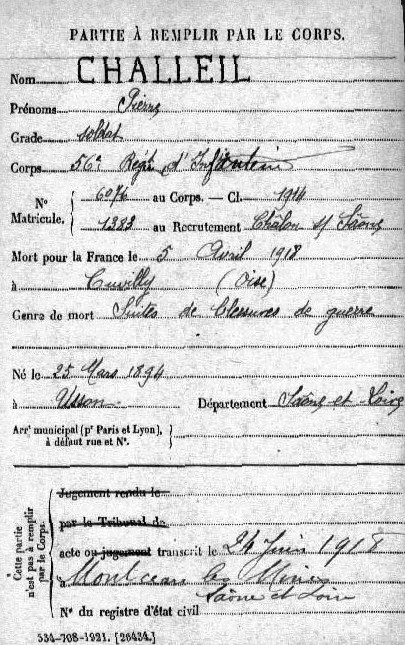 PARTIE À REMPLIR PAR LE CORPS.
Nom CHALLEIL
Prénoms Pierre
Grade soldat
Corps 56e Regt d'Infanterie
N° Matricule. 6076 au Corps. — Cl. 1914
1383 au Recrutement Châlon s/ Saône
Mort pour la France le 5 Avril 1918
à Cuvilly (Oise)
Genre de mort Suites de blessures de guerre
Né le 25 Mars 1894
à Usson Département Saône-et-Loire
Arr' municipal (p' Paris et Lyon), à défaut rue et N°.
Cette partie n'est pas à remplir par le Corps.
Jugement rendu le
par le Tribunal de
acte ou jugement transcrit le 24 Juin 1918
à Montceau les Mines
Saône et Loire
N° du registre d'état civil
534-708-1921. [26434.]